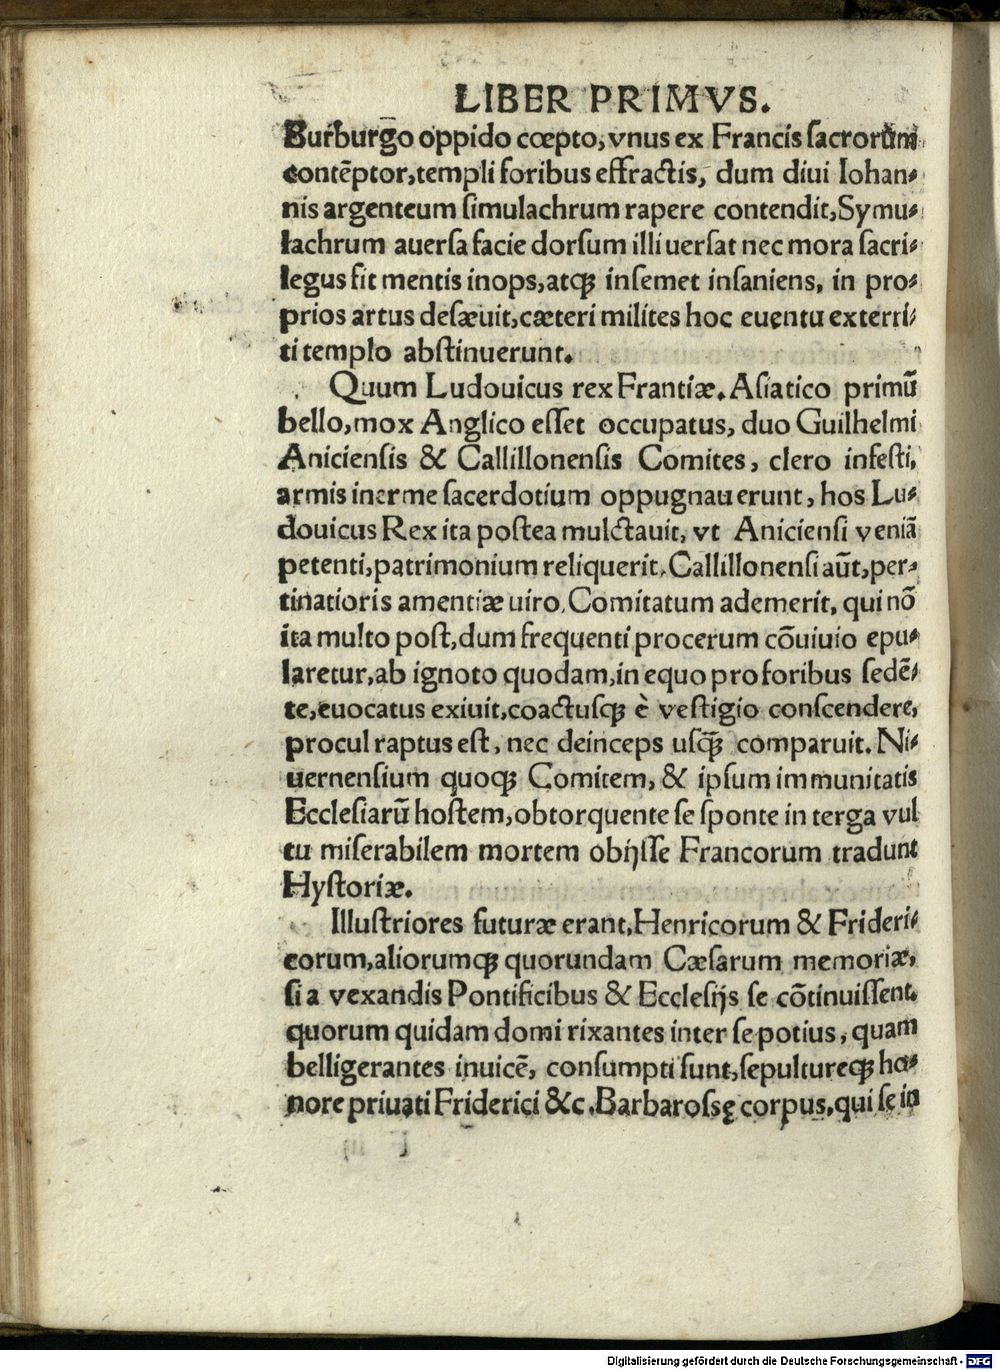 LIBER PRIMVS.
Burburgo oppido cœpto, vnus ex Francis sacrorum
contẽptor, templi foribus effractis, dum diui Iohan⸗
nis argenteum simulachrum rapere contendit, Symu⸗
lachrum auersa facie dorsum illi uersat nec mora sacri⸗
legus fit mentis inops, atqꝫ insemet insaniens, in pro⸗
prios artus desæuit, cæteri milites hoc euentu exterri⸗
ti templo abstinuerunt.
Quum Ludouicus rex Frantiæ. Asiatico primũ
bello, mox Anglico esset occupatus, duo Guilhelmi
Aniciensis & Callillonensis Comites, clero infesti,
armis inerme sacerdotium oppugnauerunt, hos Lu⸗
douicus Rex ita postea mulctauit, vt Aniciensi veniã
petenti, patrimonium reliquerit. Callillonensi aũt, per⸗
tinatioris amentiæ uiro, Comitatum ademerit, qui nõ
ita multo post, dum frequenti procerum cõuiuio epu⸗
laretur, ab ignoto quodam, in equo pro foribus sedẽ⸗
te, euocatus exiuit, coactusqꝫ è vestigio conscendere,
procul raptus est, nec deinceps usqꝫ̃ comparuit. Ni⸗
uernensium quoqꝫ Comitem, & ipsum immunitatis
Ecclesiarũ hostem, obtorquente se sponte in terga vul
tu miserabilem mortem obijsse Francorum tradunt
Hystoriæ.
Illustriores futuræ erant, Henricorum & Frideri⸗
corum, aliorumqꝫ quorundam Cæsarum memoriæ,
si a vexandis Pontificibus & Ecclesijs se cõtinuissent.
quorum quidam domi rixantes inter se potius, quam
belligerantes inuicẽ, consumpti sunt, sepultureqꝫ ho⸗
nore priuati Friderici &c. Barbarossę corpus, qui se in
Digitalisierung gefördert durch die Deutsche Forschungsgemeinschaft - DFG